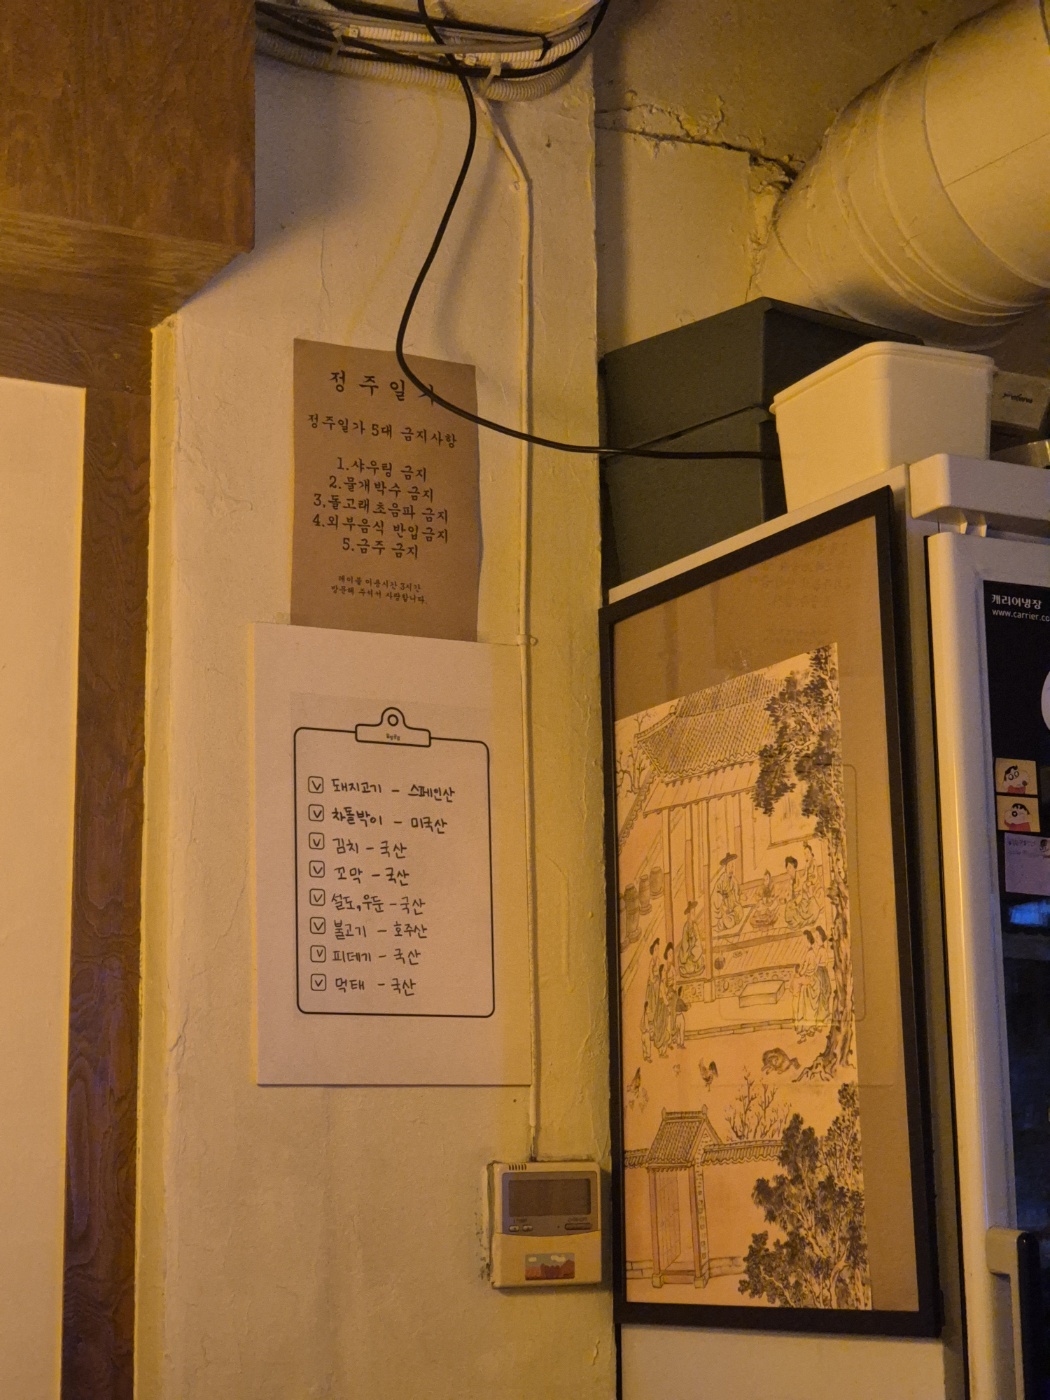 정주일가
정주일가 5대 금지사항
1.샤우팅 금지
2.물개박수 금지
3.돌고래초음파 금지
4.외부음식 반입금지
5.금주 금지
테이블 이용시간 3시간
돼지고기 - 스페인산
차돌박이 - 미국산
김치 - 국산
꼬막 - 국산
설도,우둔 - 국산
불고기 - 호주산
피데기 - 국산
먹태 - 국산
캐리어냉장
www.carrier.co